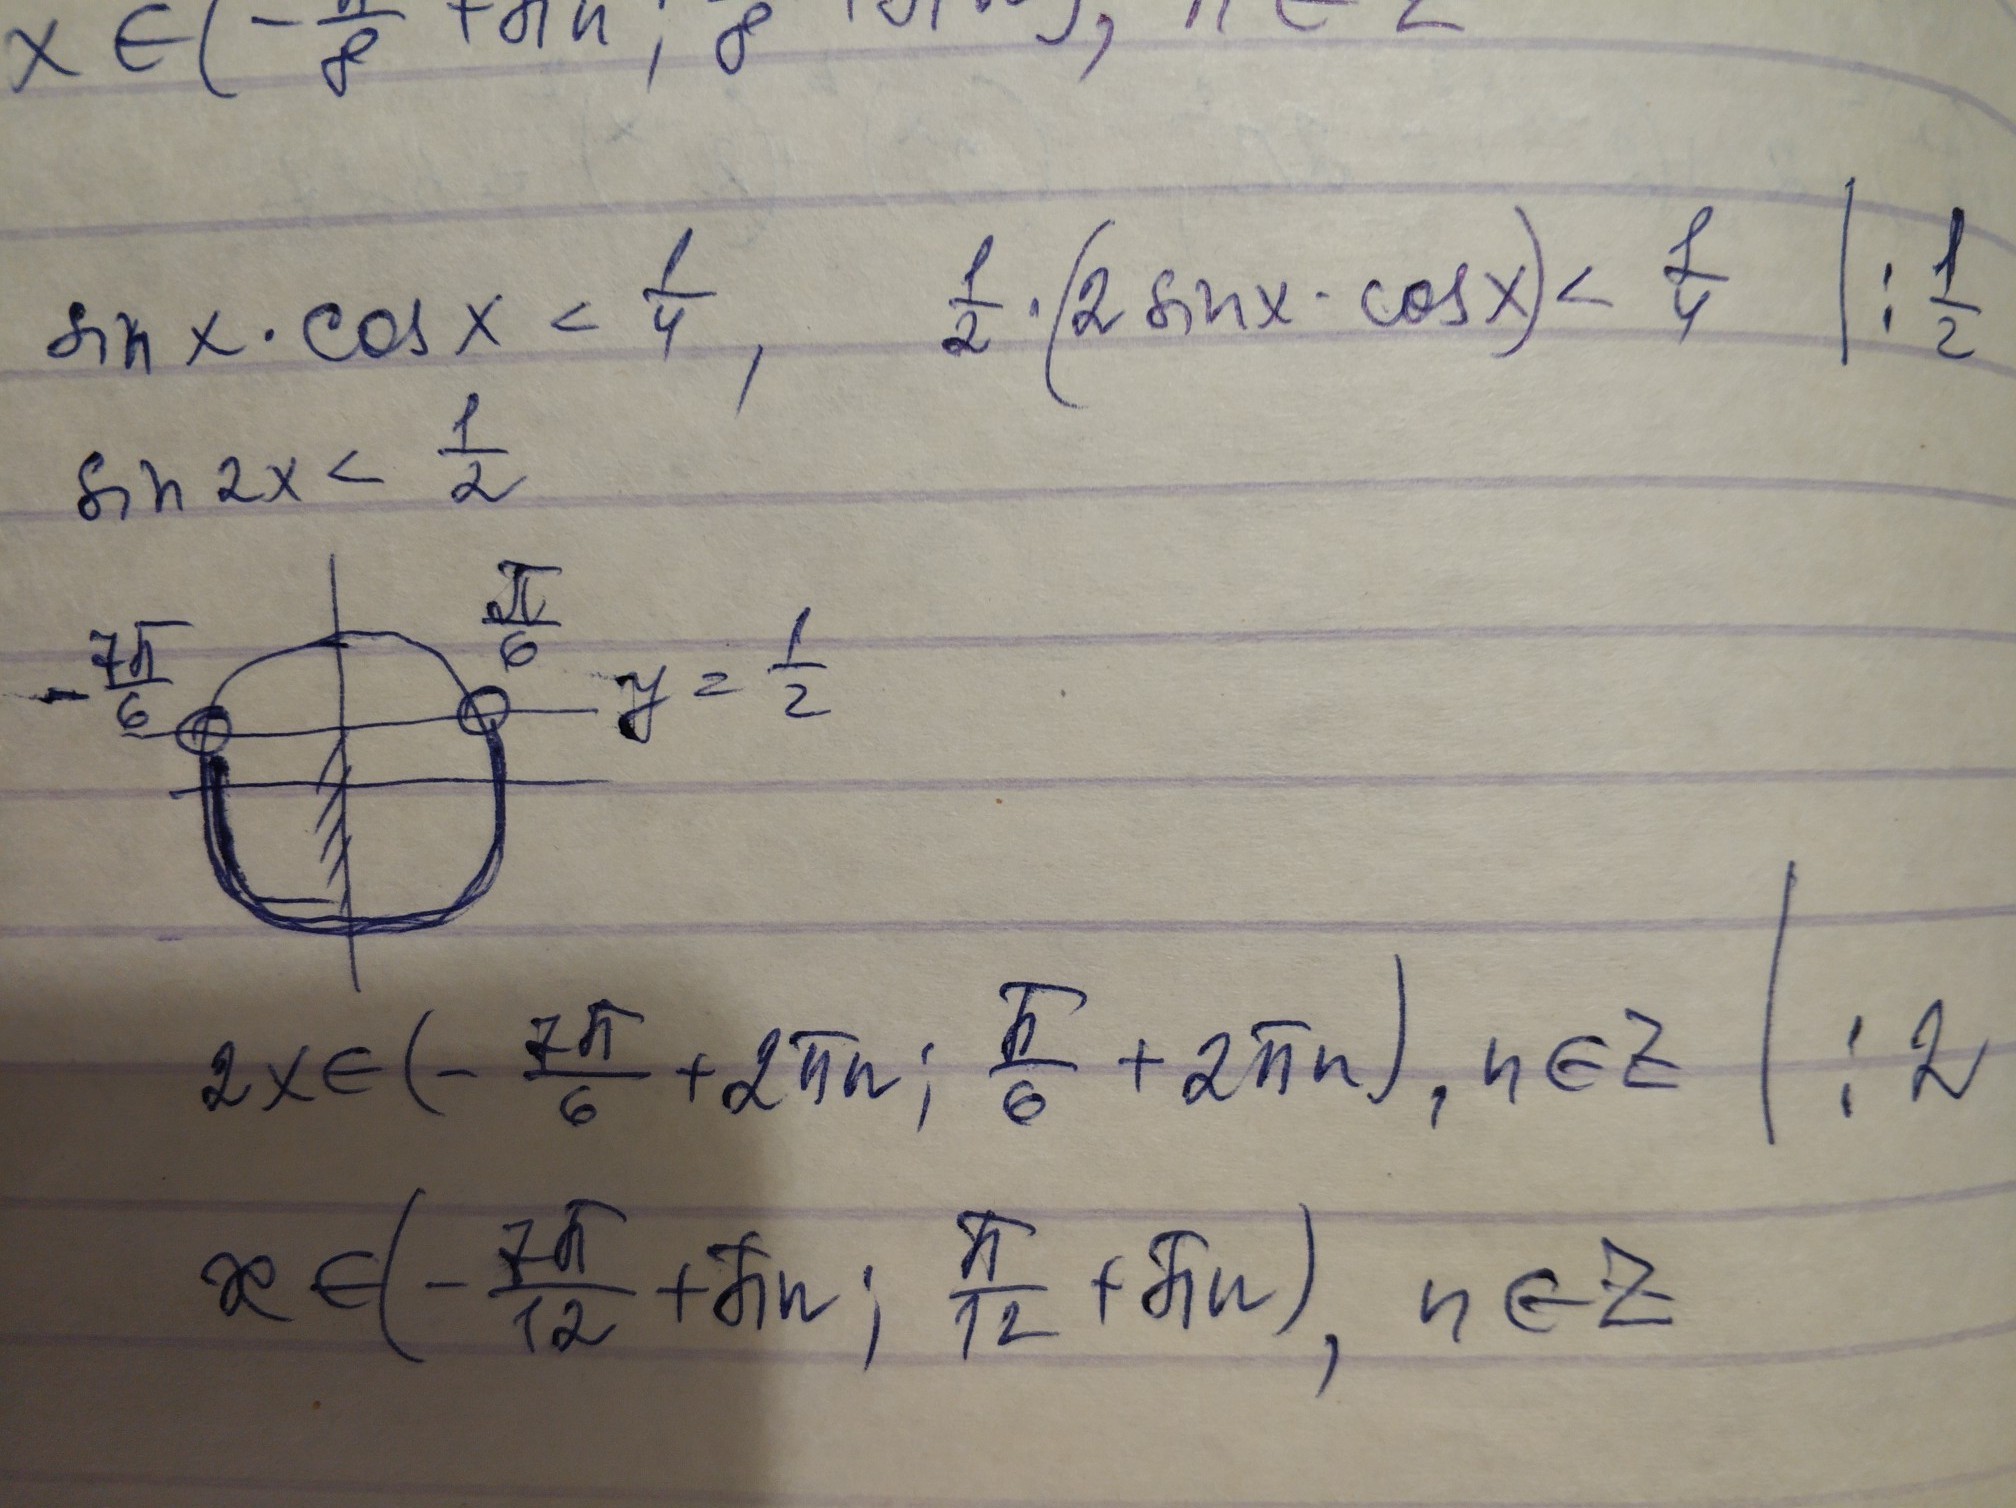 x ∈ (-π/8 + πn; π/8 + πn), n ∈ Z
sin x · cos x < 1/4, 1/2 · (2 sin x · cos x) < 1/4 | : 1/2
sin 2x < 1/2
-7π/6 π/6 y = 1/2
2x ∈ (-7π/6 + 2πn; π/6 + 2πn), n ∈ Z | : 2
x ∈ (-7π/12 + πn; π/12 + πn), n ∈ Z